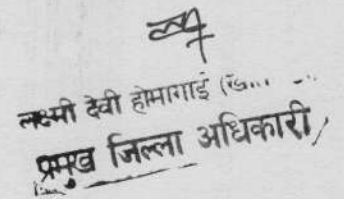 लक्ष्मी देवी होमागाई
प्रमुख जिल्ला अधिकारी